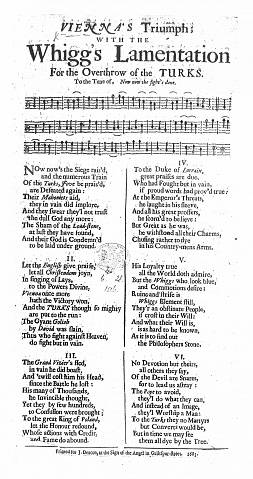 VIENNA'S Triumph;
WITH THE
Whigg's Lamentation
For the Overthrow of the TURKS.
To the Tune of, Now now the fight's done.
NOw now's the Siege rais'd,
and the numerous Train
Of the Turks, Jove be prais'd,
are Defeated again:
Their Mahomets aid,
they in vain did implore,
And they swear they'l not trust
the dull God any more:
The Sham of the Load-stone,
at last they have found,
And their God is Condemn'd
to be laid under ground.
II.
Let the English give praise,
let all Christendom joyn,
In singing of Layes,
to the Powers Divine,
Vienna once more
hath the Victory won,
And the TURKS though so mighty
are put to the run:
The Gyant Goliah
by David was slain,
Thus who fight against Heaven,
do fight but in vain.
III.
The Grand Vizier's fled,
in vain he did boast,
And 'twill cost him his Head,
since the Battle he lost:
His many of Thousands,
he Invincible thought,
Yet by few hundreds,
to Confusion were brought:
To the great King of Poland,
let the Honour redound,
Whose actions with Credit,
and Fame do abound.
IV.
To the Duke of Lorrain,
great praises are due,
Who had Fought but in vain,
if proud words had prov'd true:
At the Emperor's Threats,
he laughs in his sleeve,
And all his great proffers,
he scorn'd to believe:
But Great as he was,
he withstood all their Charms,
Chusing rather to dye
in his Country-mens Arms.
V.
His Loyalty true
all the World doth admire,
But the Whiggs who look blue,
and Commotions desire:
Ruine and strife is
Whiggs Element still,
They'r an obstinate People,
if crost in their Will:
And what their Will is,
is as hard to be known,
As it is to find out
the Philosophers Stone.
VI.
No Devotion but theirs,
all others they say,
Of the Devil are Snares,
for to lead us astray:
The Pope to avoid,
they'l do what they can,
And instead of an Image,
they'l Worship a Man:
To the Turks they no Martyrs
but Converts would be,
But in time we may see
them all dye by the Tree.
Printed for J. Deacon, at the Sign of the Angel in Guiltspur-street. 1683.